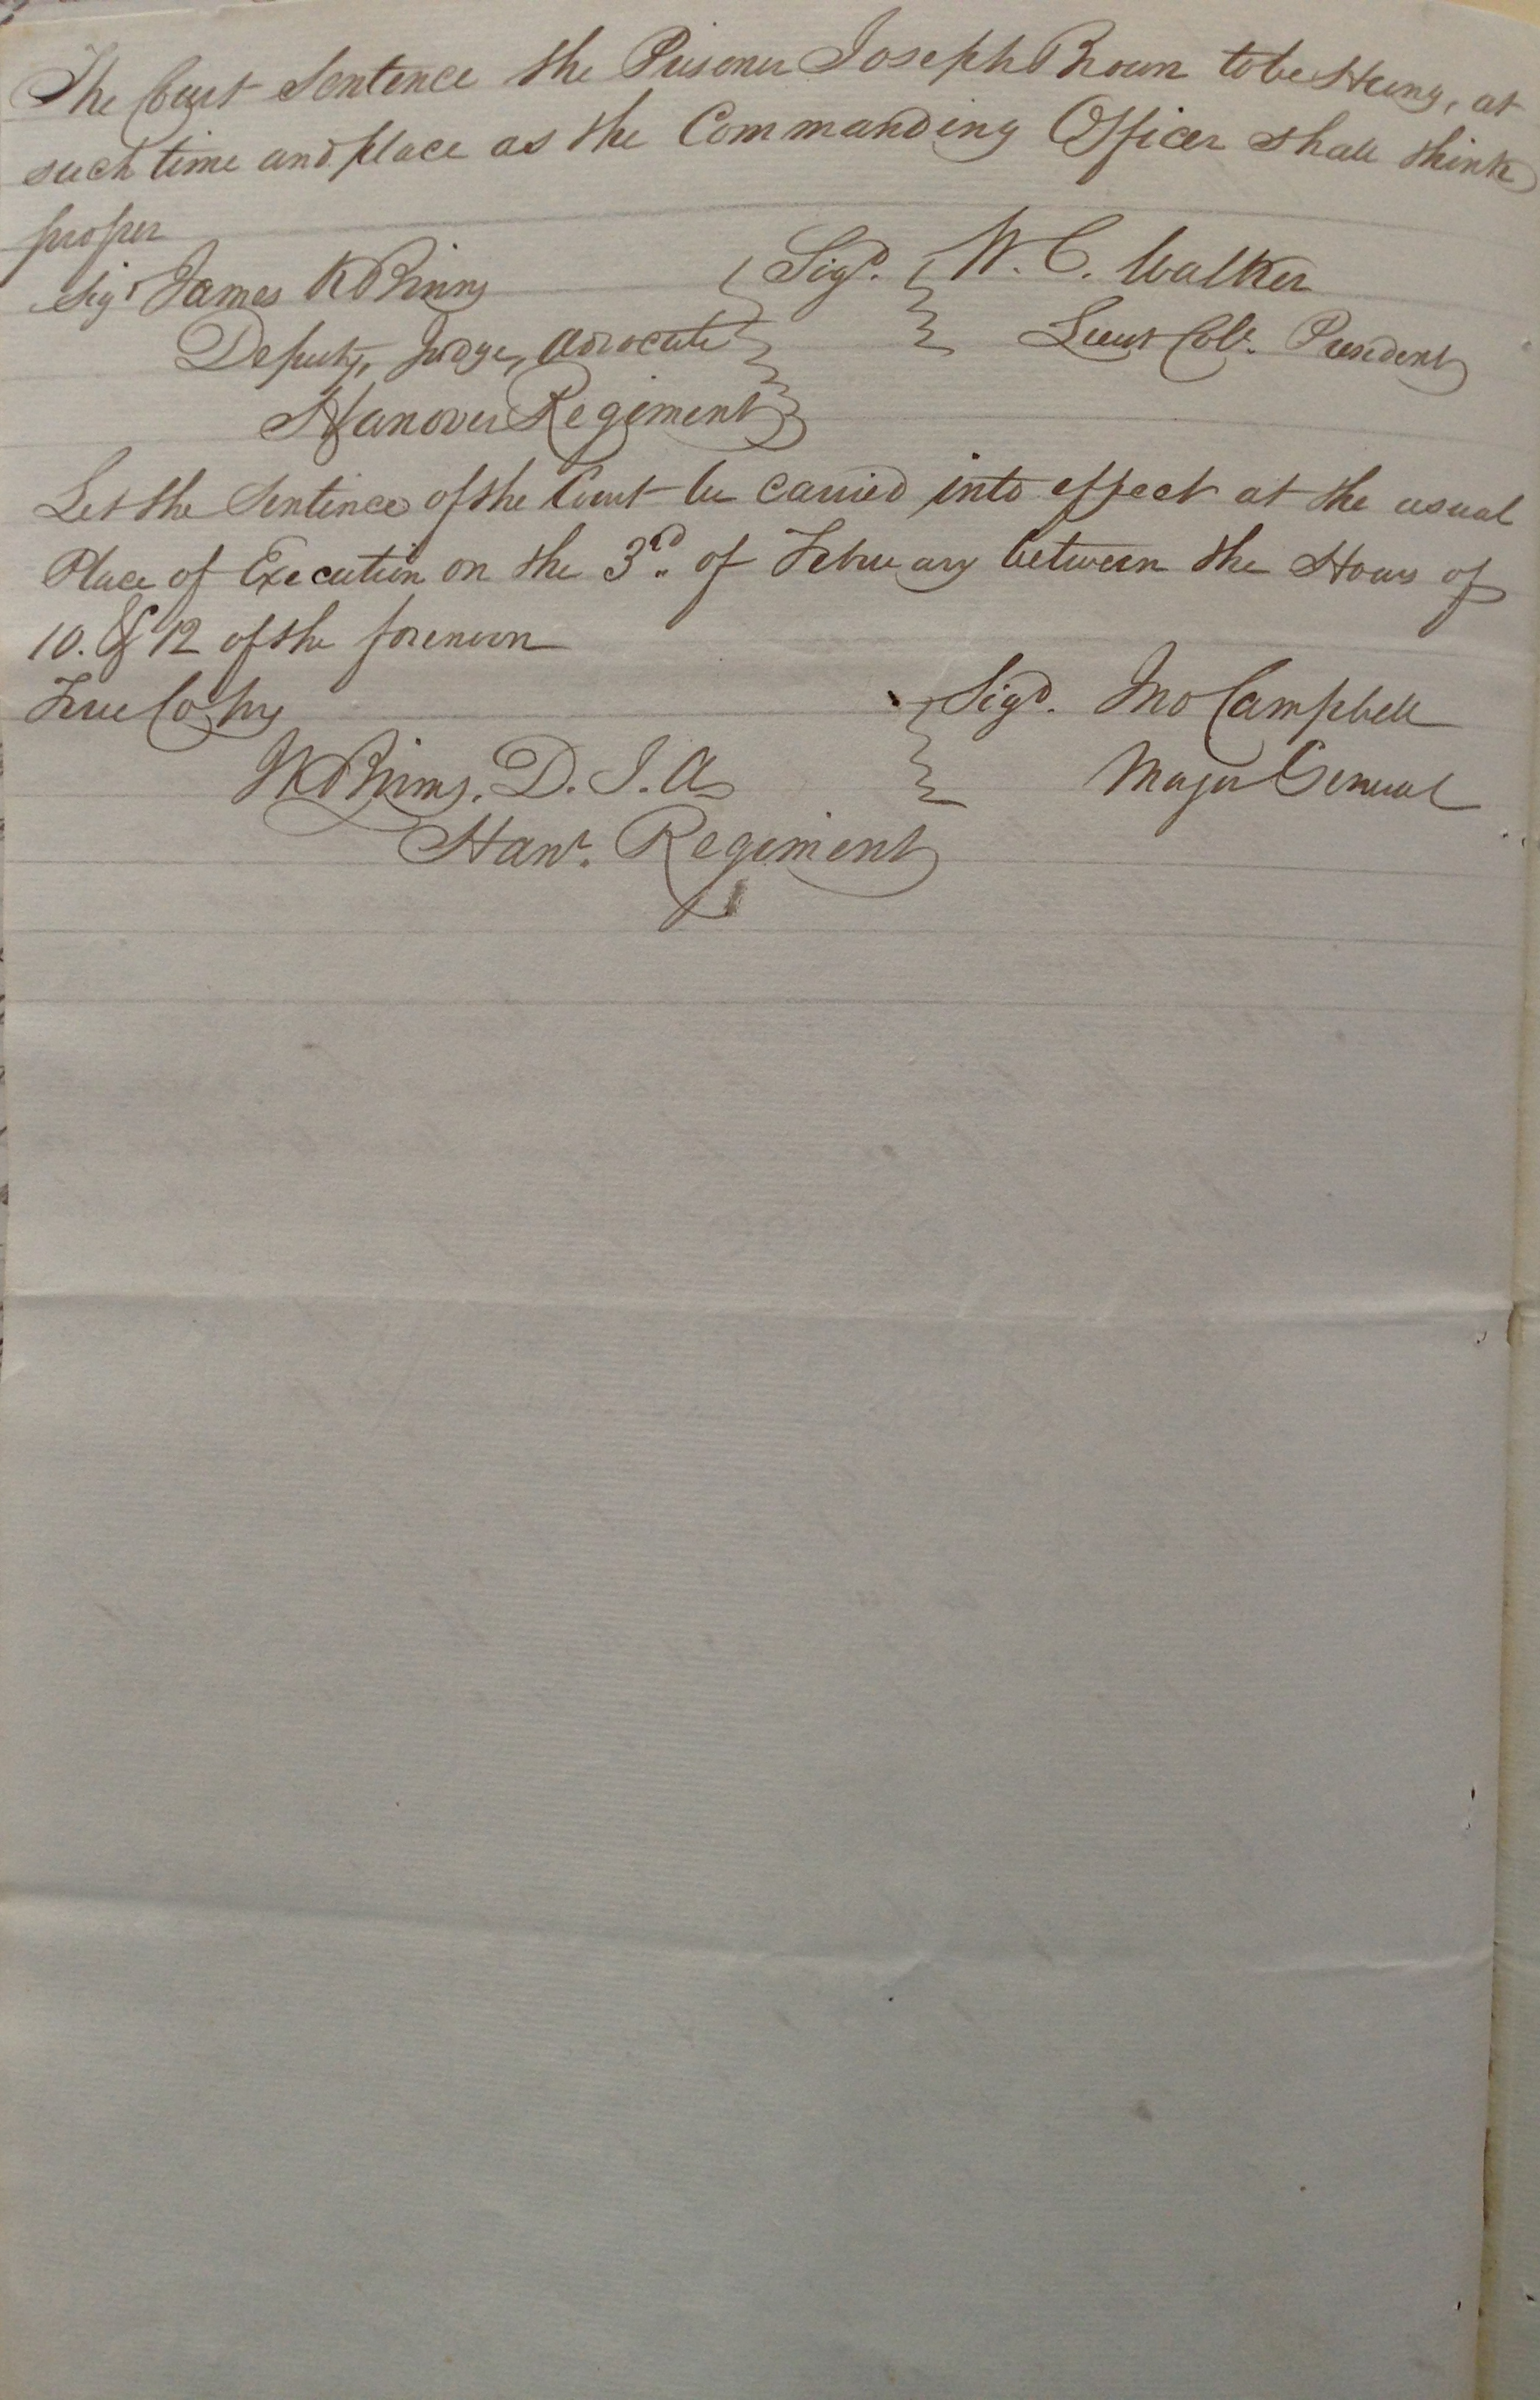 The Court Sentence the Prisoner Joseph Brown to be Hung, at
such time and place as the Commanding Officer shall think
proper
Sigd. W. C. Walker
Sigd James K Binns
Lieut Col. President
Deputy, Judge, Advocate
Hanover Regiment
Let the Sentence of the Court be carried into effect at the usual
Place of Execution on the 3rd. of February between the Hours of
10. & 12 of the forenoon
True Copy
Sigd. Jno Campbell
JK Binns. D. J. A
Major General
Hanr. Regiment